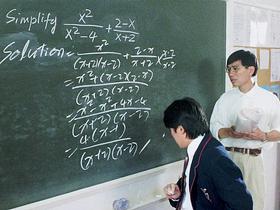 Simplify x²/(x²-4) + (2-x)/(x+2)
Solution = x²/((x+2)(x-2)) + (2-x)/(x+2) × (x-2)/(x-2)
= (x²+(x-2)(2-x))/((x+2)(x-2))
= (x²-x²+4x-4)/((x+2)(x-2))
= 4(x-1)/((x+2)(x-2))